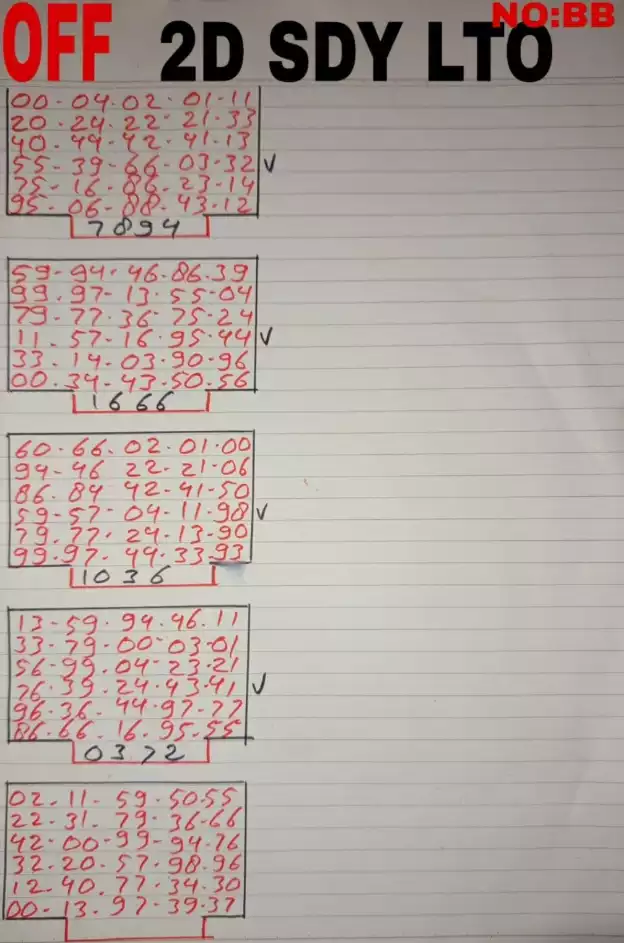 NO:BB
OFF 2D SDY LTO
00-04.02.01-11
20-24.22-21-33
40-44-42-41-13
55-39-66-03-32 ✓
75-16-86-23-14
95-06-88-43-12
7894
59-94-46.86.39
99.97-13-55-04
79-77-36-75-24
11.57-16.95-44 ✓
33.14-03.90-96
00.34-43-50-56
1666
60-66.02.01-00
94-46 22-21-06
86.84 42-41-50
59-57-04-11-98 ✓
79.77.24-13-90
99.97.44.33.93
1036
13-59.94.46.11
33-79-00-03-01
56-99.04-23-21
76.39.24.43.41 ✓
96-36.44.97.77
86.66.16.95.55
0372
02.11-59.50.55
22.31.79.36-66
42-00-99-94.76
32.20-57.98.96
12.40.77.34.30
00-13.97.39.37